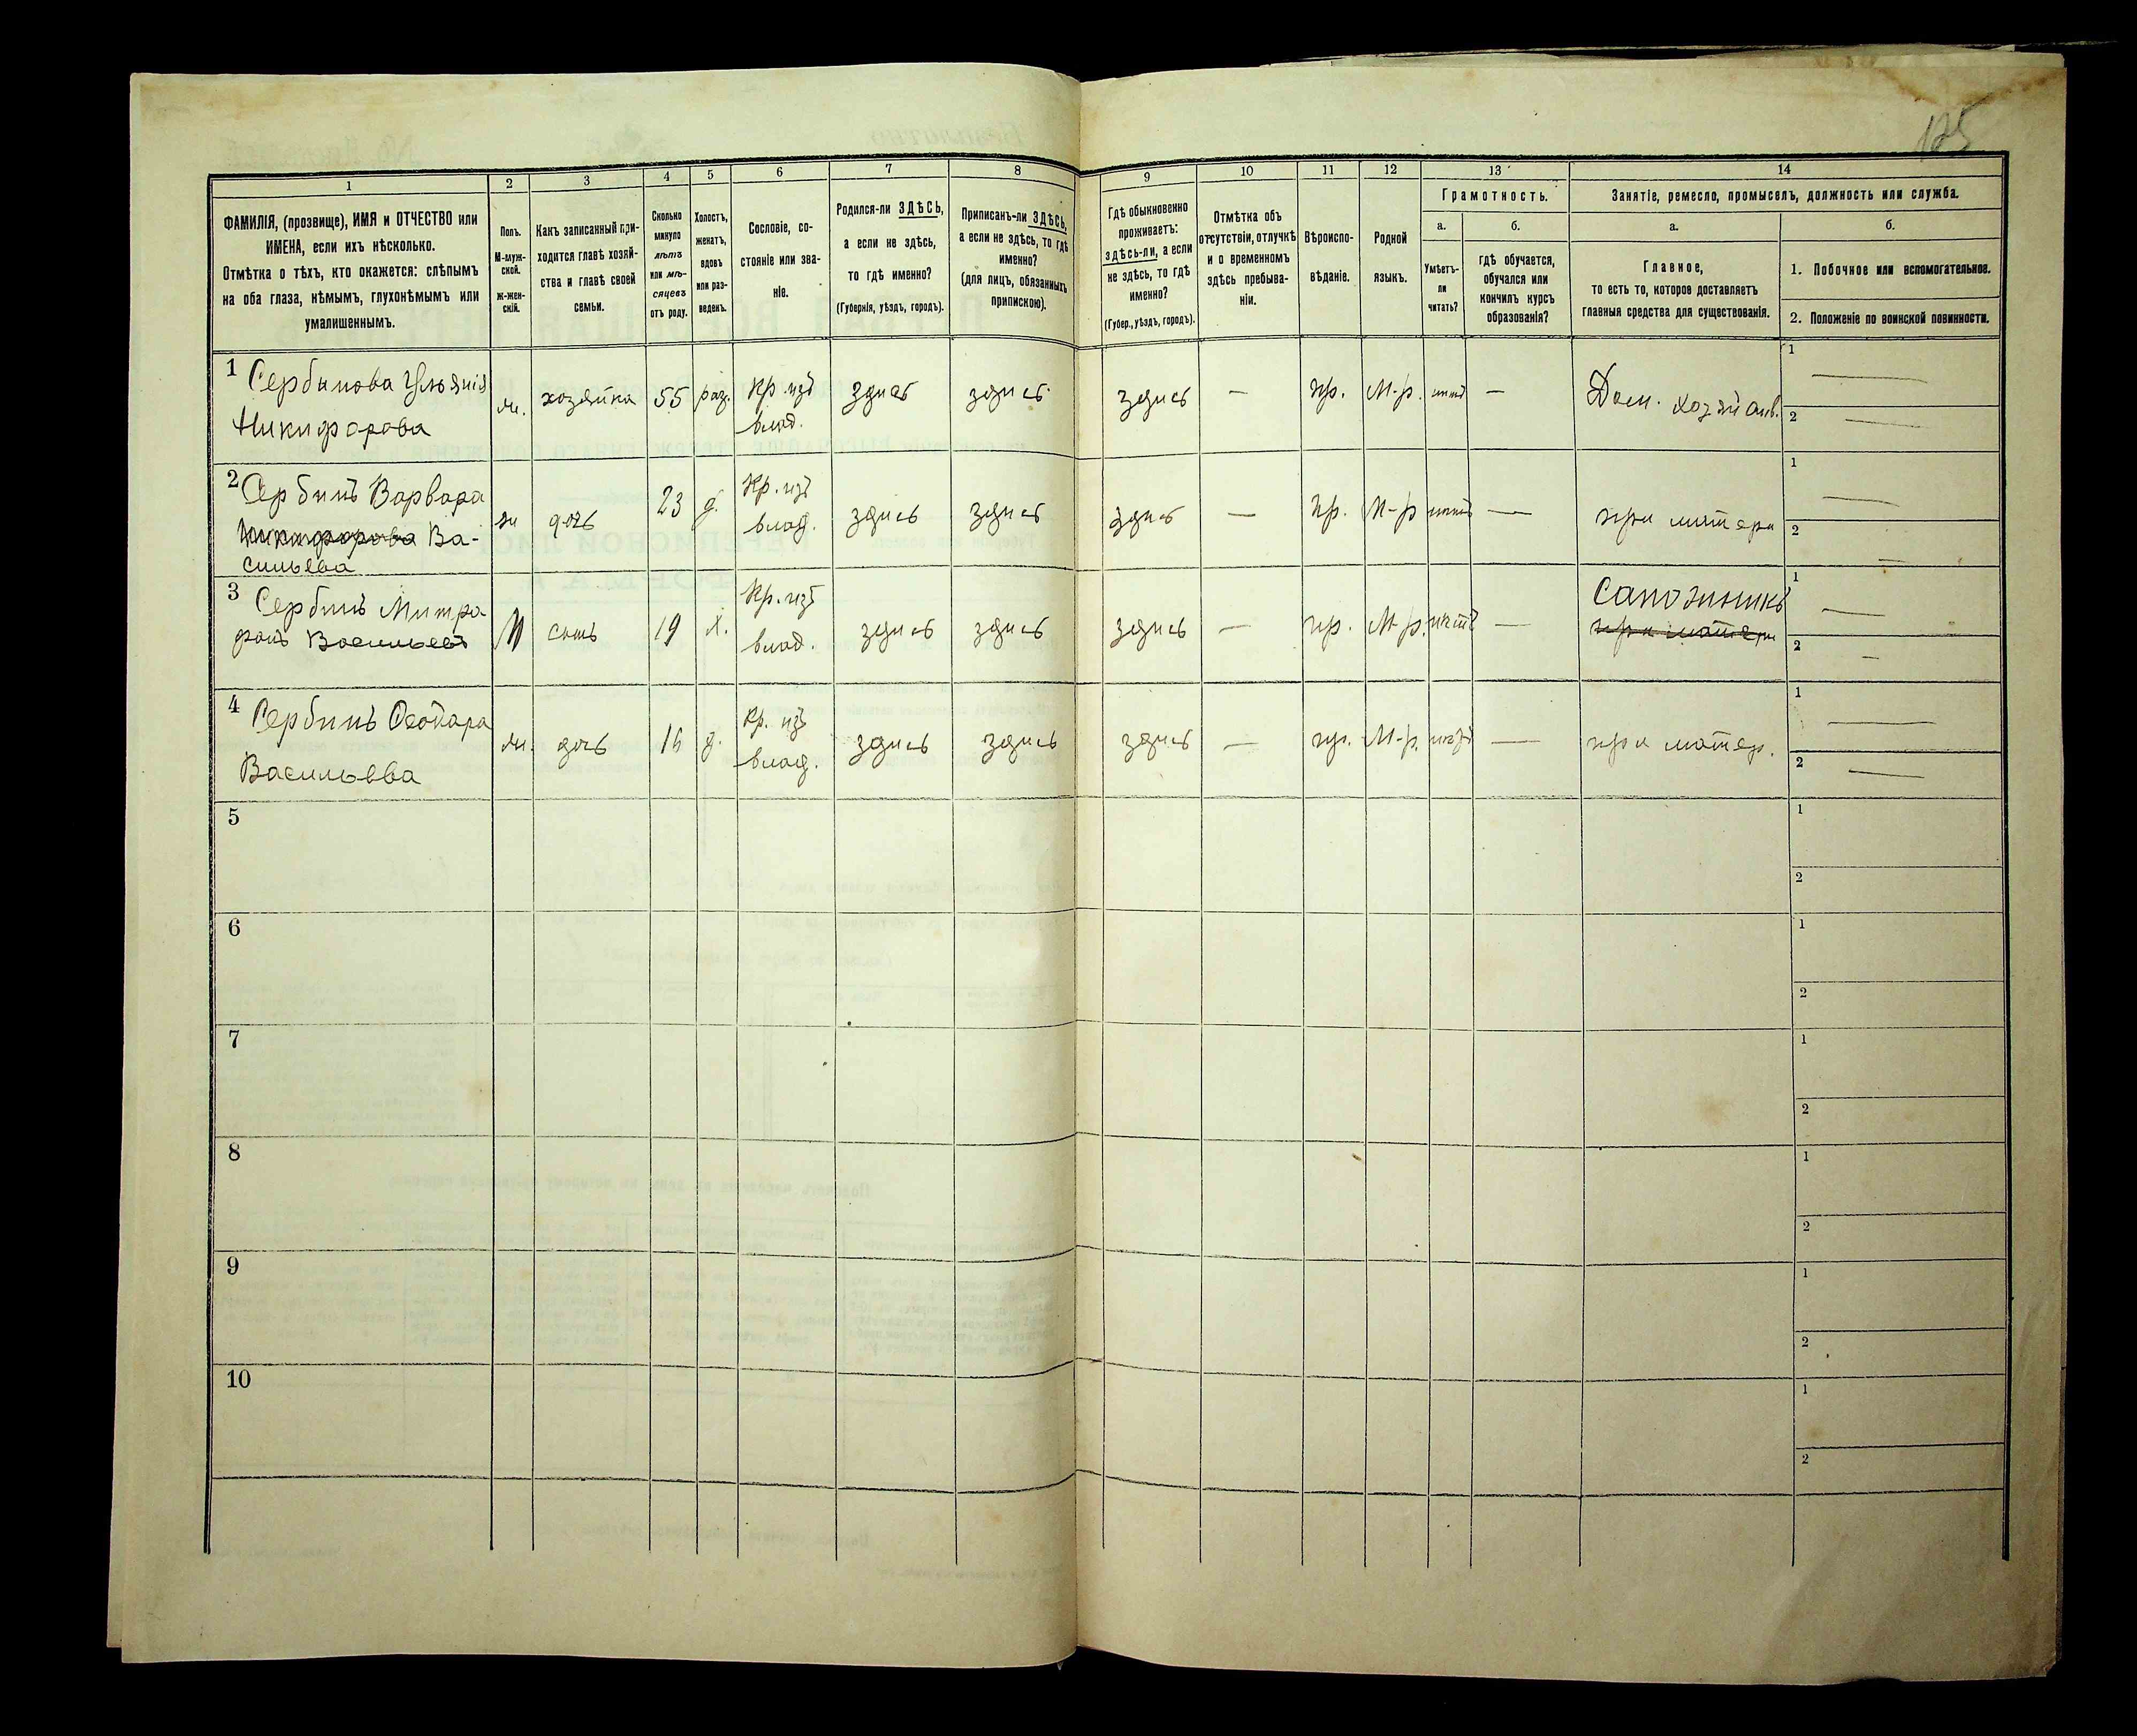 125
1
2
3
4
5
6
7
8
9
10
11
12
13
14
ФАМИЛІЯ, (прозвище), ИМЯ и ОТЧЕСТВО или
ИМЕНА, если ихъ нѣсколько.
Отмѣтка о тѣхъ, кто окажется: слѣпымъ
на оба глаза, нѣмымъ, глухонѣмымъ или
умалишеннымъ.
Полъ.
М-муж-
ской.
ж-жен-
скій.
Какъ записанный при-
ходится главѣ хозяй-
ства и главѣ своей
семьи.
Сколько
минуло
лѣтъ
или мѣ-
сяцевъ
отъ роду.
Холостъ,
женатъ,
вдовъ
или раз-
веденъ.
Сословіе, со-
стояніе или зва-
ніе.
Родился-ли ЗДѢСЬ,
а если не здѣсь,
то гдѣ именно?
(Губернія, уѣздъ, городъ).
Приписанъ-ли ЗДѢСЬ,
а если не здѣсь, то гдѣ
именно?
(для лицъ, обязанныхъ
припискою).
Гдѣ обыкновенно
проживаетъ:
здѣсь-ли, а если
не здѣсь, то гдѣ
именно?
(Губер., уѣздъ, городъ).
Отмѣтка объ
отсутствіи, отлучкѣ
и о временномъ
здѣсь пребыва-
ніи.
Вѣроиспо-
вѣданіе.
Родной
языкъ.
Грамотность.
а.
Умѣетъ-
ли
читать?
б.
гдѣ обучается,
обучался или
кончилъ курсъ
образованія?
Занятіе, ремесло, промыселъ, должность или служба.
а.
Главное,
то есть то, которое доставляетъ
главныя средства для существованія.
б.
1. Побочное или вспомогательное.
2. Положеніе по воинской повинности.
1 Сербинова Ульянія
Никифорова
ж.
хозяйка
55
раз.
Кр. изъ
влад.
здись
здись
здись
—
пр.
М-р.
нитъ
—
Дом. хозяйств.
1 —
2 —
2 Сербинъ Варвара
Никифорова Ва-
сильева
ж
дочь
23
д.
Кр. изъ
влад.
здись
здись
здись
—
пр.
М-р
нитъ
—
при матери
1 —
2 —
3 Сербинъ Митро
фанъ Васильевъ
М
сынъ
19
х.
Кр. изъ
влад.
здись
здись
здись
—
пр.
М-р.
нитъ
—
Сапожникъ
при матери
1 —
2 —
4 Сербинъ Феодора
Васильева
ж.
дочь
16
д.
Кр. изъ
влад.
здись
здись
здись
—
пр.
М-р.
—
при матер.
1 —
2 —
5
1
2
6
1
2
7
1
2
8
1
2
9
1
2
10
1
2